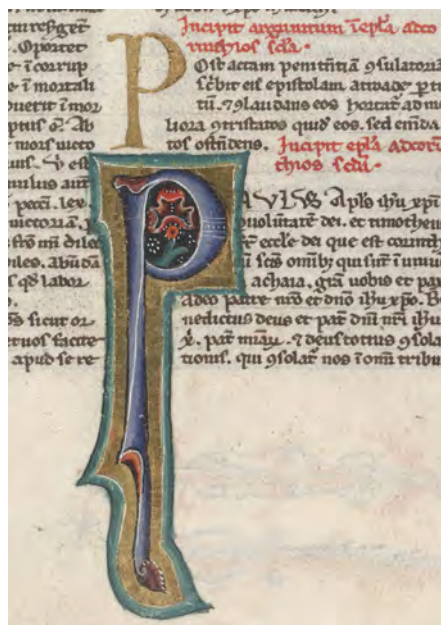 resurgēt
. Oportet
ē ī corrup
e ī mortali
ī mor
ptus ē. Ab
mors uicto
est
mulus aut̄
lex.
uictoriā. p
mi dilec
biles. abūdā
s qd̄ labor
sicut or
et uos facite
apud se re
Incipit argumtum ī epla ad co
rinthios scda.
P
Ost actam penitētiā ↄsulatoriā
sc̄bit eis epistolam a troade p ti
tū. ⁊ laudans eos hortat̄ ad me
liora ↄtristatos quid̄ eos. sed emēda
tos ostn̄dens. Incipit epl̄a ad corin̄
thios sc̄da.
PAVLVS Apl̄s ihū xp̄i
p uolūtatē dei. et timotheus
fr̄ eccl̄e dei que est corinthi
cū sc̄is omib; qui sūt ī uniu
achaia. grā uobis et pax
a deo patre nr̄o et dn̄o ihū xp̄o. Be
nedictus deus et pat̄ dn̄i nr̄i ihū
x̄. pat̄ mīaꝝ. ⁊ deus totius ↄsola
tionis. qui ↄsolat̄ nos ī om̄i tribu